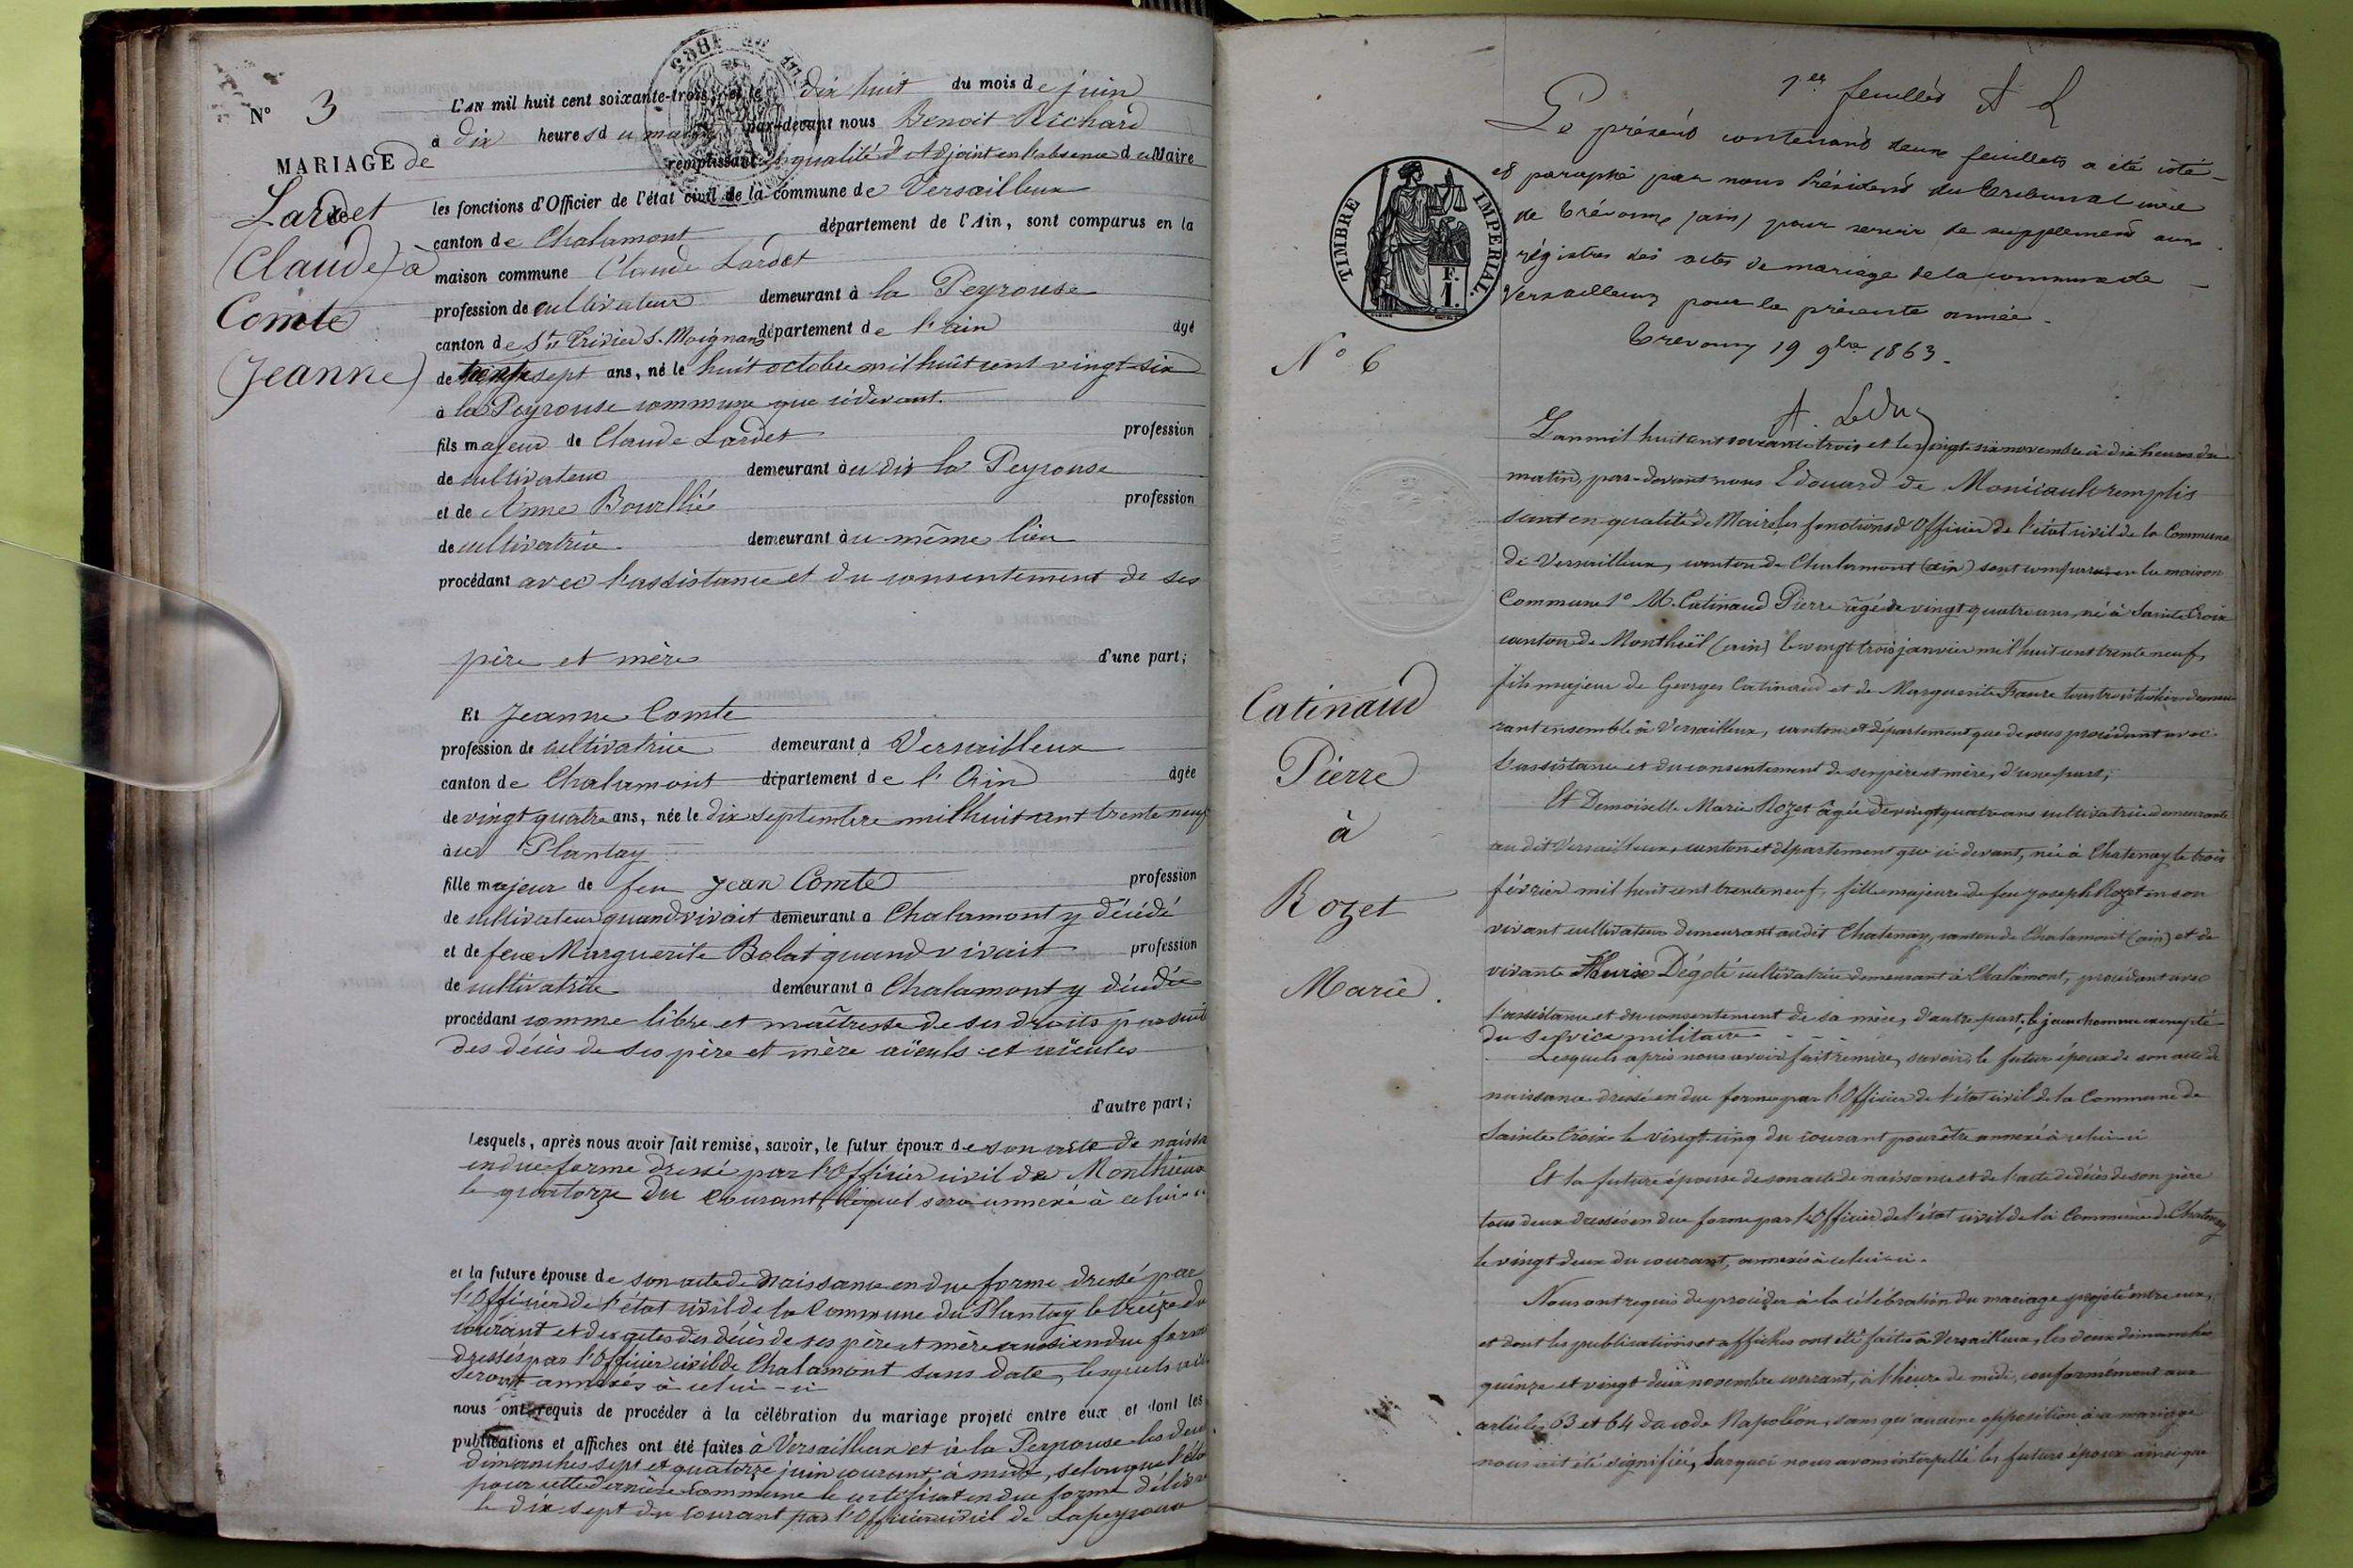 N° 3
MARIAGE de
Lardet
(Claude) à
Comte
(Jeanne)
L'AN mil huit cent soixante-trois, et le dix huit du mois de juin
à dix heures du matin par-devant nous Benoit Richard
remplissant en qualité d'Adjoint en l'absence du Maire
les fonctions d'Officier de l'état civil de la commune de Versailleux
canton de Chalamont département de l'Ain, sont comparus en la
maison commune Claude Lardet
profession de cultivateur demeurant à la Peyrouse
canton de St Trivier S. Moignans département de l'ain âgé
de trente sept ans, né le huit octobre mil huit cent vingt-six
à la Peyrouse commune que ci devant.
fils majeur de Claude Lardet profession
de cultivateur demeurant au dit la Peyrouse
et de Anne Bourlhié profession
de cultivatrice demeurant au même lieu
procédant avec l'assistance et du consentement de ses
père et mère d'une part;
Et Jeanne Comte
profession de cultivatrice demeurant à Versailleux
canton de Chalamont département de l'Ain âgée
de vingt quatre ans, née le dix septembre mil huit cent trente neuf
au Plantay
fille majeur de feu Jean Comte profession
de cultivateur quand vivait demeurant à Chalamont y décédé
et de feue Marguerite Bolat quand vivait profession
de cultivatrice demeurant à Chalamont y décédée
procédant comme libre et maîtresse de ses droits par suite
des décès de ses père et mère aïeuls et aïeules
d'autre part;
Lesquels, après nous avoir fait remise, savoir, le futur époux de son acte de naissa
en due forme dressé par l'Officier civil de Monthieux
le quatorze du courant, lequel sera annexé à celui-ci
et la future épouse de son acte de naissance en due forme dressé par
l'Officier de l'état civil de la Commune du Plantay le treize du
courant et des actes des décès de ses père et mère aussi en due forme
dressés par l'Officier civil de Chalamont sans date, lesquels
seront annexés à celui-ci
nous ont requis de procéder à la célébration du mariage projeté entre eux et dont les
publications et affiches ont été faites à Versailleux et à la Peyrouse les deux
dimanches sept et quatorze juin courant, à midi, selon que l'
pour cette dernière commune le certificat en due forme délivré
le dix sept du courant par l'Officier civil de Lapeyrouse
1er feuillet A L
Le présent contenant deux feuillets a été coté
et paraphé par nous Président du tribunal civil
de trévoux (ain) pour servir de supplément aux
régistres des actes de mariage de la commune de
Versailleux pour la présente année.
trevoux 19 9bre 1863.
A. Leduc
TIMBRE IMPERIAL.
F.
1.
N° 6
Catinaud
Pierre
à
Rozet
Marie.
L'an mil huit cent soixante trois et le vingt-six novembre à dix heures du
matin, par-devant nous Edouard de Monicault remplis
sant en qualité de Maire les fonctions d'Officier de l'état civil de la Commune
de Versailleux, canton de Chalamont (ain) sont comparus en la maison
Commune 1° M. Catinaud Pierre âgé de vingt quatre ans, né à Sainte Croix
canton de Montluël (ain) le vingt trois janvier mil huit cent trente neuf,
fils majeur de Georges Catinaud et de Marguerite Faure tous trois demeu
rant ensemble à Versailleux, canton et département que dessus procédant avec
l'assistance et du consentement de ses père et mère, d'une part;
Et Demoiselle Marie Rozet âgée de vingt quatre ans cultivatrice demeurante
au dit Versailleux, canton et département que ci-devant, née à Chatenay le trois
février mil huit cent trente neuf, fille majeure de feu Joseph Rozet en son
vivant cultivateur demeurant audit Chatenay, canton de Chalamont (ain) et de
vivante Marie Dégoté cultivatrice demeurant à Chalamont, procédant avec
l'assistance et du consentement de sa mère, d'autre part, le jeune homme exempté
du service militaire
Lesquels après nous avoir fait remise, savoir, le futur époux de son acte de
naissance dressé en due forme par l'Officier de l'état civil de la Commune de
Sainte Croix le vingt-cinq du courant pour être annexé à celui-ci
Et la future épouse de son acte de naissance et de l'acte de décès de son père
tous deux dressés en due forme par l'Officier de l'état civil de la Commune de Chatenay
le vingt deux du courant, annexés à celui-ci.
Nous ont requis de procéder à la célébration du mariage projeté entre eux,
et dont les publications et affiches ont été faites à Versailleux, les deux dimanches
quinze et vingt deux novembre courant, à l'heure de midi, conformément aux
articles 63 et 64 du code Napoléon, sans qu'aucune opposition à ce mariage
nous ait été signifiée, Surquoi nous avons interpellé les futurs époux ainsi que